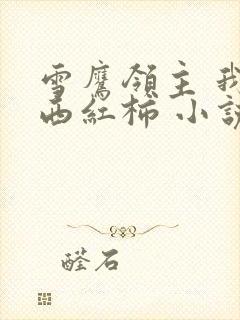 雪鷹領主 我
西紅柿 小說
醛石